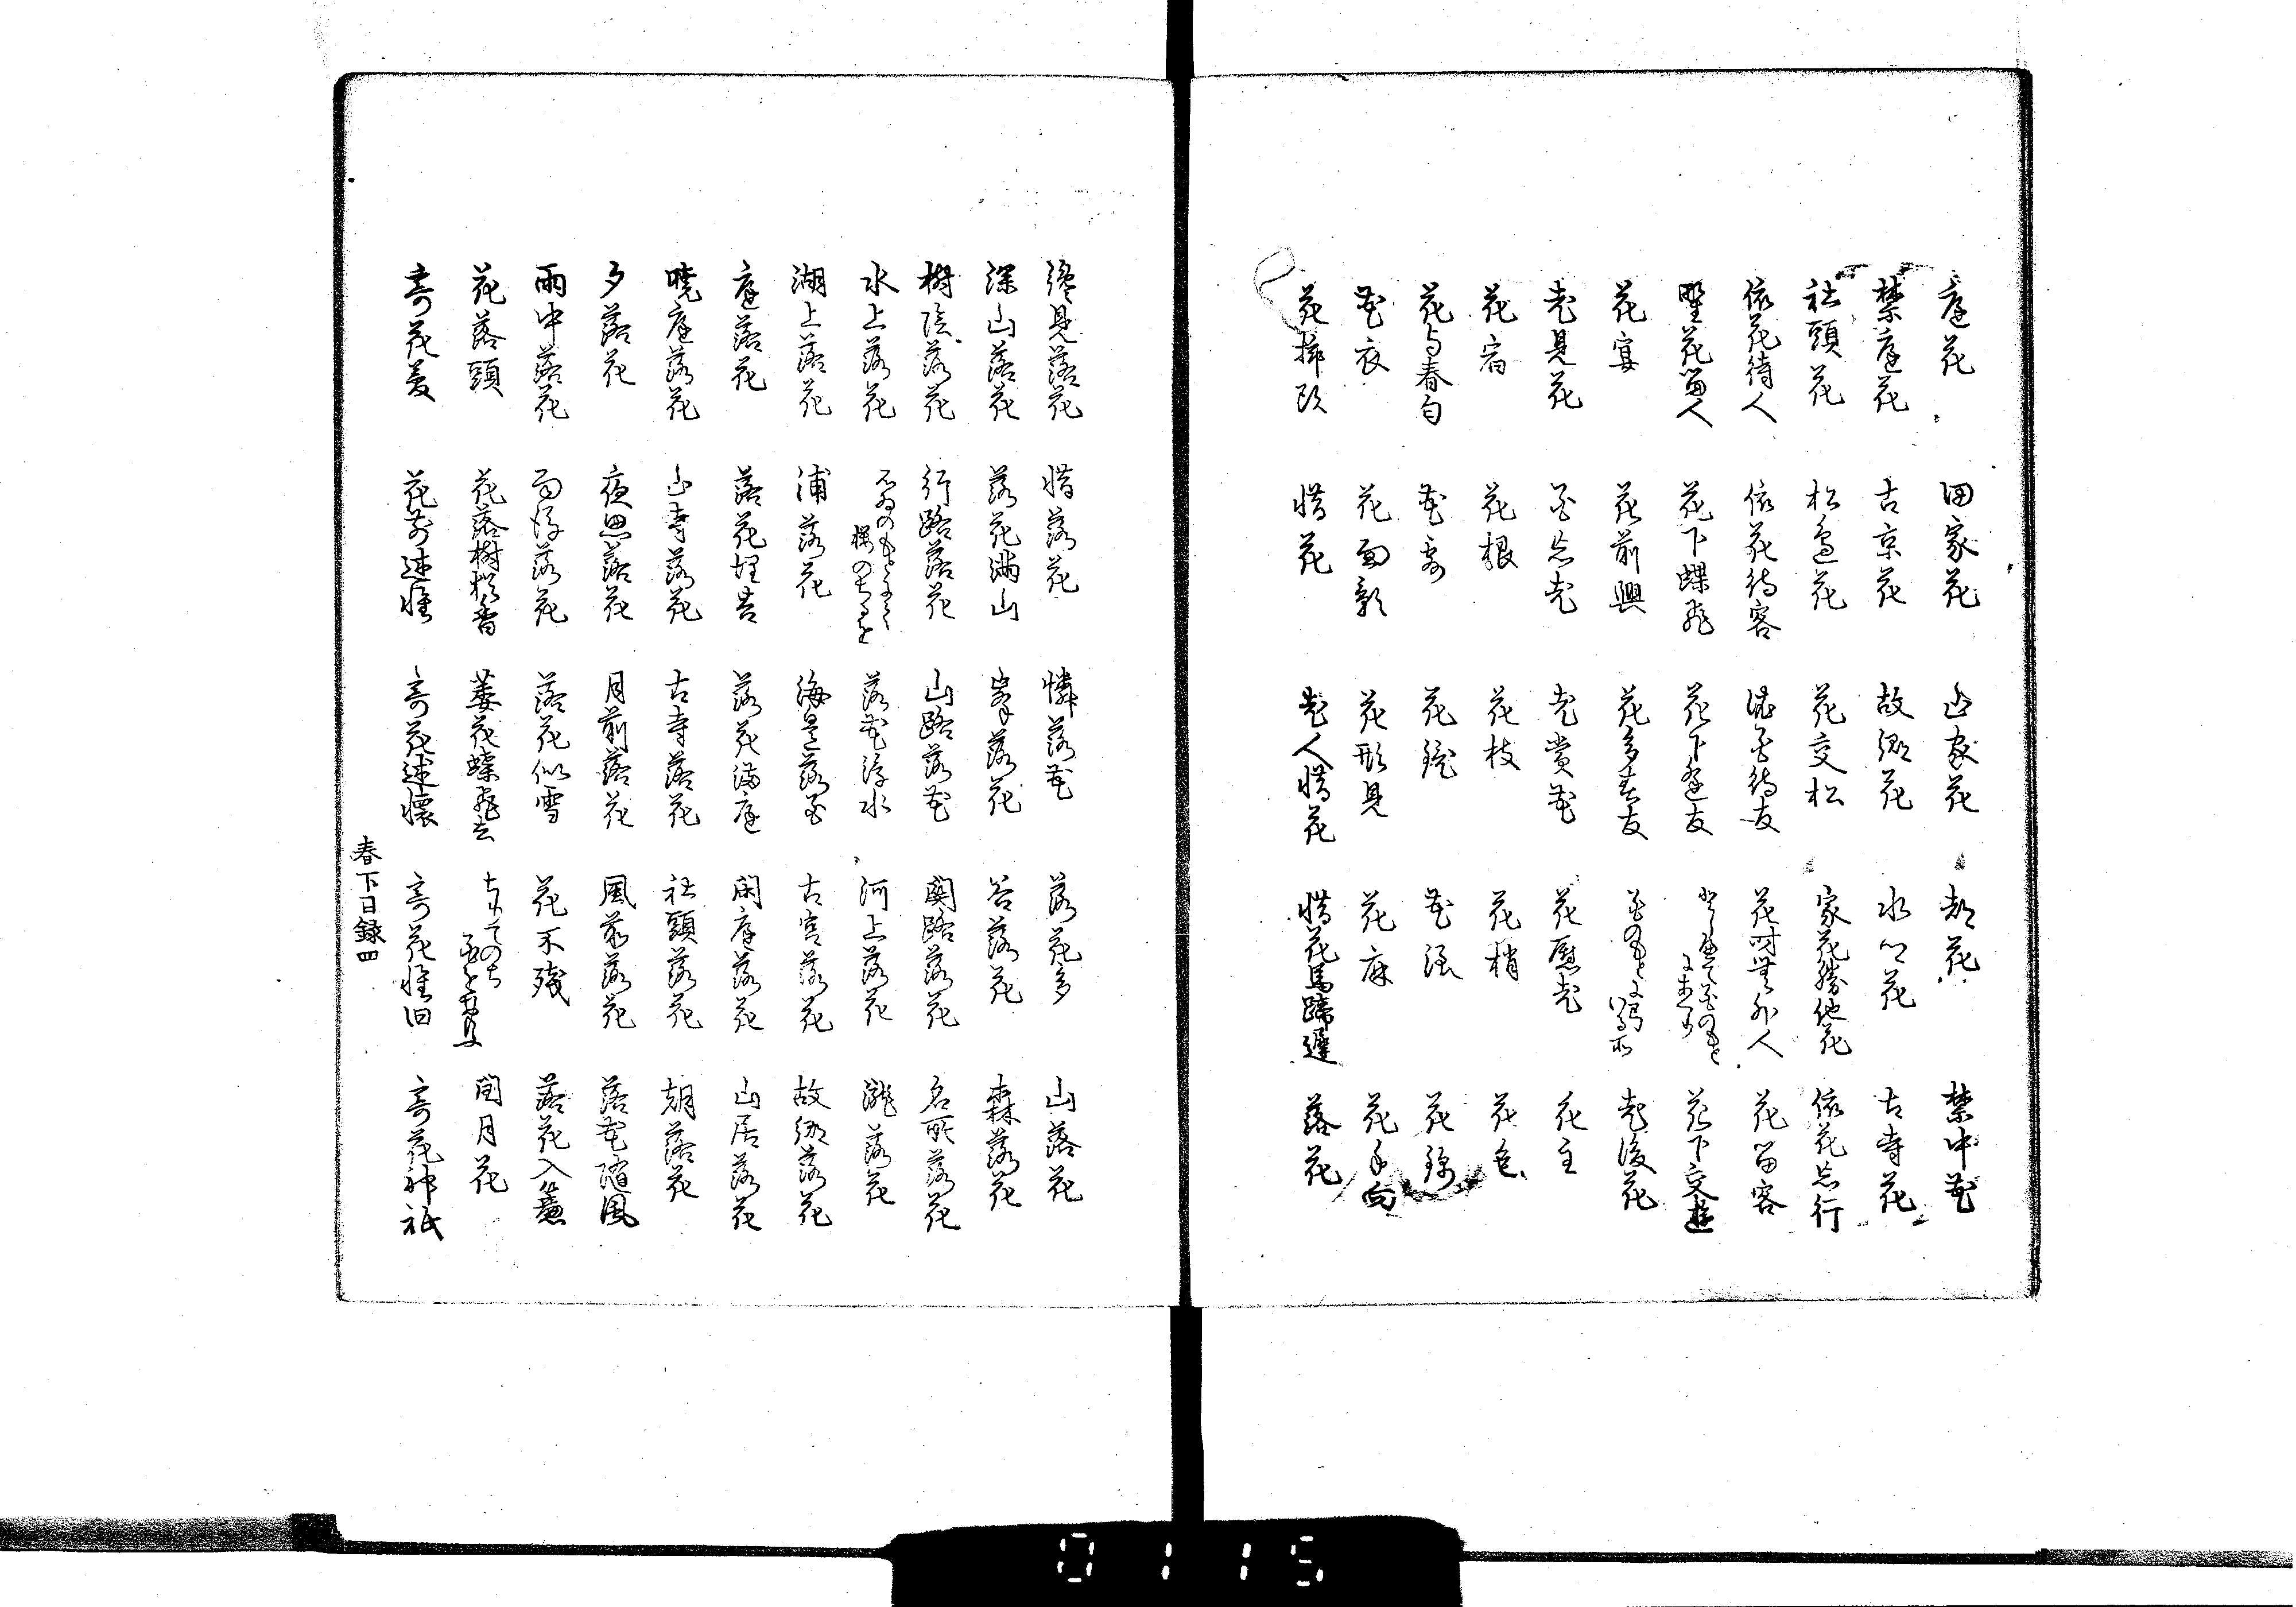 庭花 田家花 山家花 都花 禁中花
禁庭花 古京花 故郷花 水郷花 古寺花
社頭花 松邊花 花交松 家花勝他花 依花忘行
依花待人 依花待客 待友 花時無外人 花留客
野花留人 花下蝶飛 花下逢友 花下交遊
花宴 花前興 花多春友 老後花
老見花 花忘老 老賞花 花慰老 花主
花宿 花根 花枝 花梢 花色
花与春匀 花鏡 花浪 花錦
花衣 花面影 花形見 花麻 花手向
花挿頭 惜花 老人惜花 惜花馬蹄遅 落花
纔見落花 惜落花 憐落花 落花多 山落花
深山落花 落花満山 峯落花 谷落花 森落花
樹陰落花 行路落花 山路落花 関路落花 名所落花
水上落花 落花浮水 河上落花 瀧落花
湖上落花 浦落花 海邊落花 古宮落花 故郷落花
庭落花 落花埋苔 落花満庭 閑庭落花 山居落花
暁庭落花 山寺落花 古寺落花 社頭落花 朝落花
夕落花 夜思落花 月前落花 風前落花 落花随風
雨中落花 雨後落花 落花似雪 花不残 落花入簾
花落頭 花落樹猶香 萎花蝶飛去 閏月花
寄花夏 花前述懐 寄花述懐 寄花懐旧 寄花神祇
春下目録四
0115